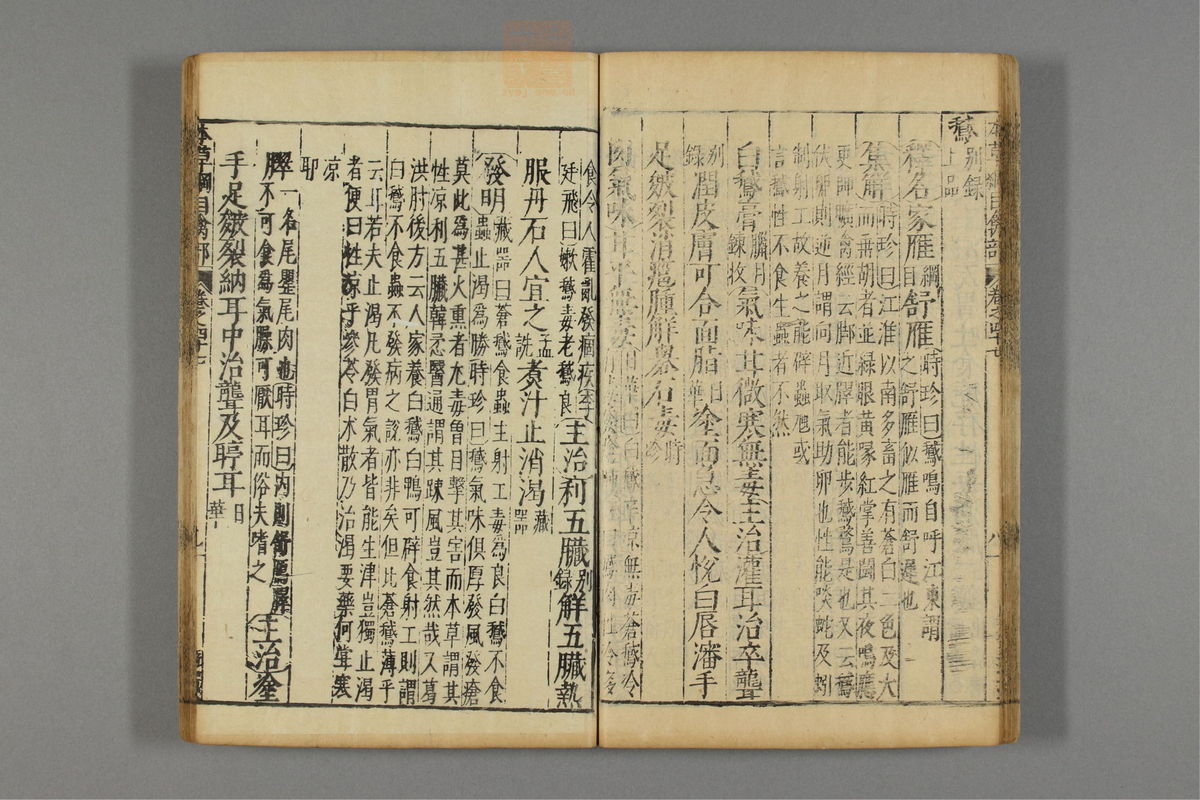 本草綱目禽部 卷之四十七
鵝 別錄上品
釋名 家雁 綱目 舒雁 時珍曰鵝鳴自呼江東謂
之舒雁似雁而舒遲也
集解 時珍曰江淮以南多畜之有蒼白二色及大
而垂胡者並綠眼黃喙紅掌善鬬其夜鳴應
更師曠禽經云脚近臎者能步鵝鶩是也又云鵝
伏卵則逆月謂向月取氣助卵也性能啖蛇及蚓
制射工故養之能辟蟲虺或
言鵝性不食生蟲者不然
白鵝膏 臘月鍊收 氣味甘微寒無毒主治灌耳治卒聾
別錄 潤皮膚可合面脂 日華 塗面急令人悅白唇瀋手
足皴裂消癰腫解礜石毒 時珍
肉氣味甘平無毒 日華曰白鵝辛涼無毒蒼鵝冷
食令人霍亂發痼疾李
廷飛曰嫩鵝毒老鵝良 主治利五臟 別錄 解五臟熱
服丹石人宜之 孟詵 煮汁止消渴 藏器
發明 藏器曰蒼鵝食蟲主射工毒爲良白鵝不食
蟲止渴爲勝時珍曰鵝氣味俱厚發風發瘡
莫此爲甚火熏者尤毒曾目擊其害而本草謂其
性凉利五臟韓𢘅醫通謂其踈風豈其然哉又葛
洪肘後方云人家養白鵝白鴨可辟食射工則謂
白鵝不食蟲不發病之說亦非矣但比蒼鵝薄乎
云耳若夫止渴凡發胃氣者皆能生津豈獨止渴
者便曰性凉乎參苓白朮散乃治渴要藥何嘗寒
凉
耶
臎 一名尾罌尾肉也時珍曰內則舒鴈臎
不可食爲氣臊可厭耳而俗夫嗜之 主治塗
手足皴裂納耳中治聾及聤耳 日華
本草綱目禽部 卷之四十七